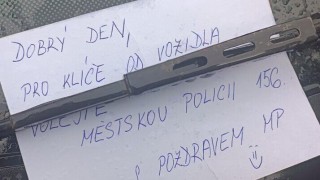 DOBRÝ DEN,
PRO KLÍČE OD VOZIDLA
VOLEJTE
MĚSTSKOU POLICII 156.
S POZDRAVEM MP